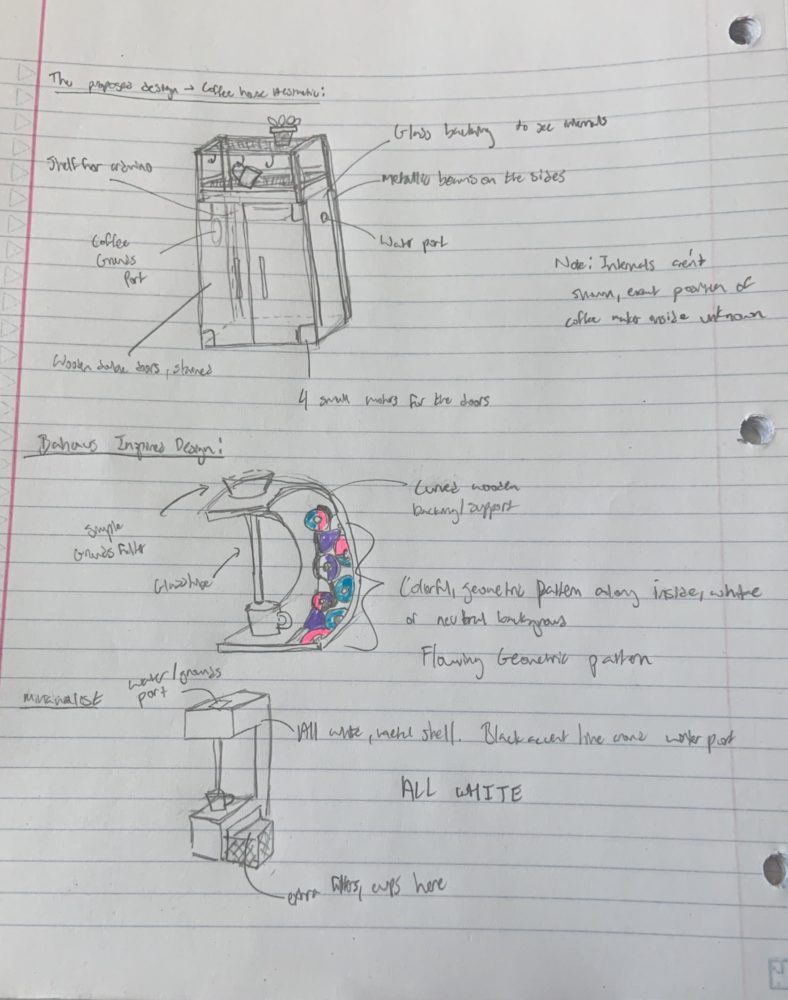 The proposed design → Coffee house Aesthetic:
Glass backing to see internals
Shelf for arduino
metallic beams on the sides
Coffee
Grounds
Port
Water port
Note: Internals aren't
shown, exact position of
coffee maker inside unknown
Wooden double doors, stained
4 small motors for the doors
Bahaus Inspired Design:
Curved wooden
backing/support
Simple
Grounds Filter
Glass tube
Colorful, geometric pattern along inside, white
or neutral background
Flowing Geometric pattern
minimalist
water/grounds
port
All white, metal shell. Black accent line around water port
ALL WHITE
extra filters, cups here